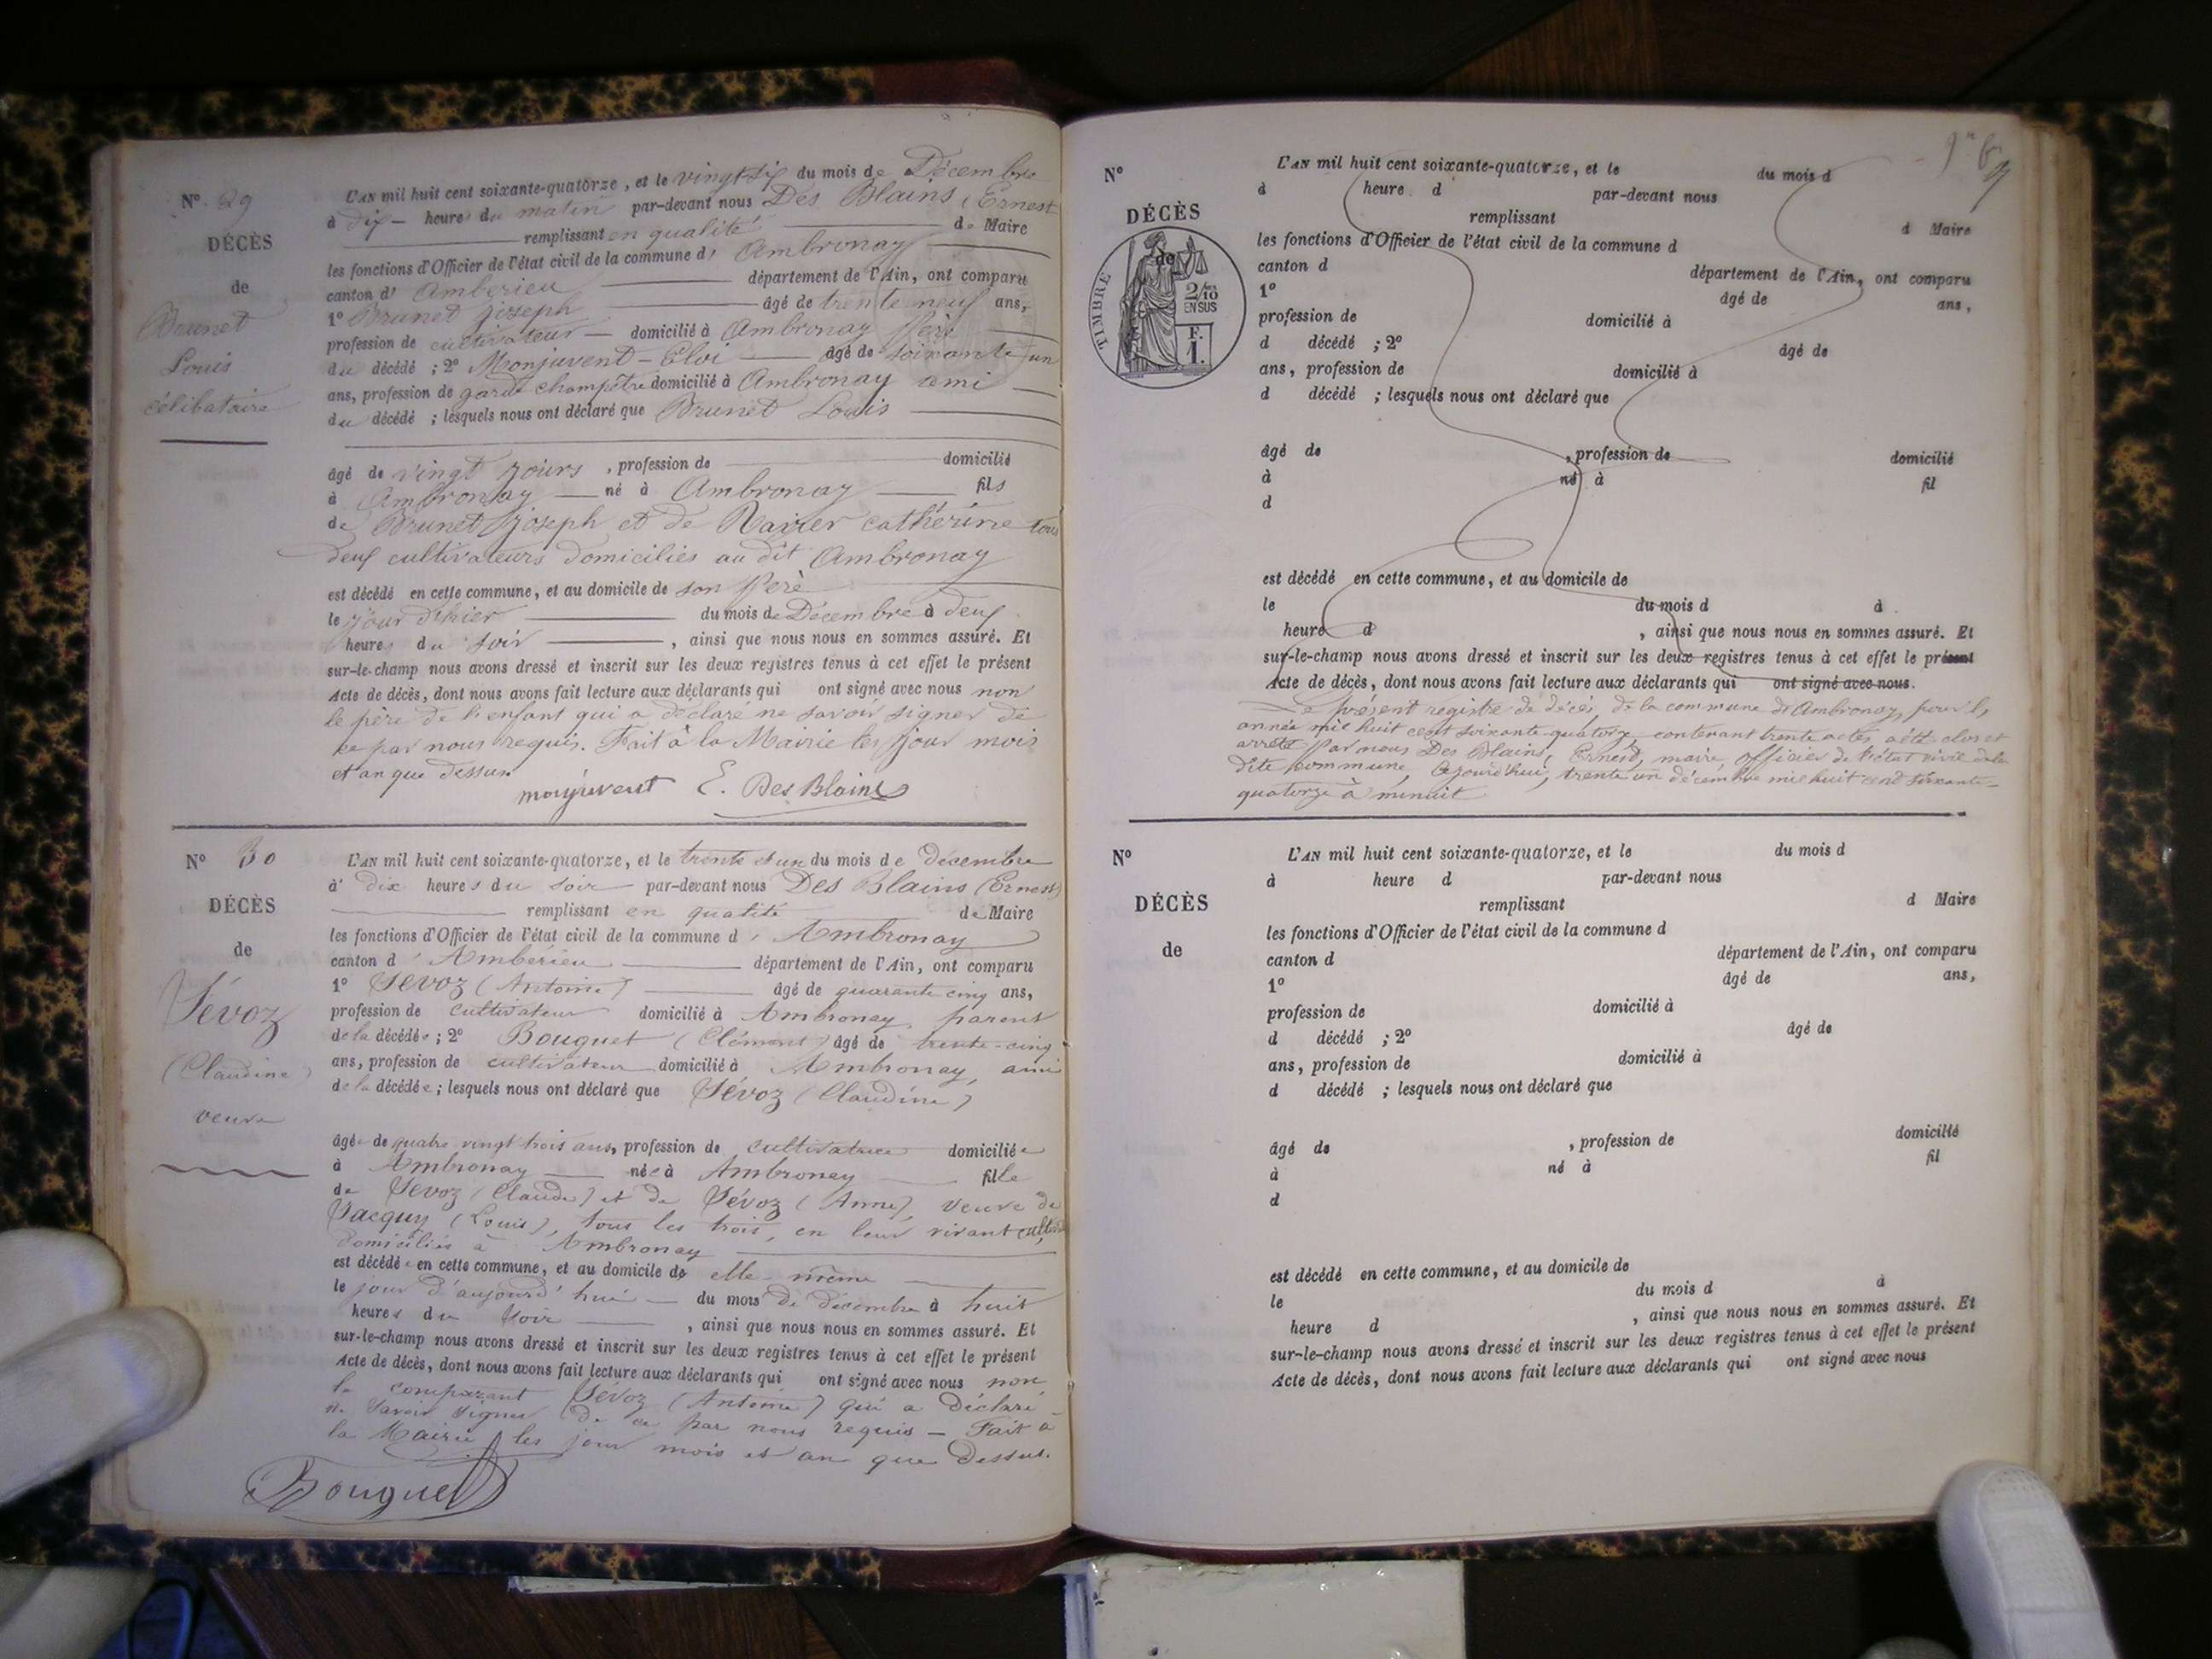 N° 29
DÉCÈS
de
Brunet
Louis
célibataire
L'AN mil huit cent soixante-quatorze, et le vingt six du mois de Décembre
à dix heures du matin par-devant nous Des Blains (Ernest
remplissant en qualité de Maire
les fonctions d'Officier de l'état civil de la commune d' Ambronay
canton d' Amberieu département de l'Ain, ont comparu
1° Brunet joseph âgé de trente neuf ans,
profession de cultivateur domicilié à Ambronay Père
du décédé ; 2° Monjuvent Eloi âgé de soixante un
ans, profession de garde champêtre domicilié à Ambronay ami
du décédé ; lesquels nous ont déclaré que Brunet Louis
âgé de vingt jours , profession de domicilié
à Ambronay né à Ambronay fils
de Brunet joseph et de catherine tous
deux cultivateurs domiciliés au dit Ambronay
est décédé en cette commune, et au domicile de son Père
le jour d'hier du mois de Décembre à deux
heures du soir , ainsi que nous nous en sommes assuré. Et
sur-le-champ nous avons dressé et inscrit sur les deux registres tenus à cet effet le présent
Acte de décès, dont nous avons fait lecture aux déclarants qui ont signé avec nous non
le père de l'enfant qui a déclaré ne savoir signer de
ce par nous requis. Fait à la Mairie les jour mois
et an que dessus
monjuvent E. Des Blains
N° 30
DÉCÈS
de
Sévoz
(Claudine)
veuve
L'AN mil huit cent soixante-quatorze, et le trente et un du mois de décembre
à dix heures du soir par-devant nous Des Blains (Ernest)
remplissant en qualité de Maire
les fonctions d'Officier de l'état civil de la commune d' Ambronay
canton d' Ambérieu département de l'Ain, ont comparu
1° Sévoz (Antoine) âgé de quarante cinq ans,
profession de cultivateur domicilié à Ambronay, parent
de la décédée ; 2° Bouguet (Clément) âgé de trente-cinq
ans, profession de cultivateur domicilié à Ambronay, ami
de la décédée ; lesquels nous ont déclaré que Sévoz (Claudine)
âgée de quatre vingt trois ans, profession de cultivatrice domiciliée
à Ambronay née à Ambronay fille
de Sévoz (Claude) et de Sévoz (Anne), veuve de
Jacquy (Louis), tous les trois, en leur vivant
domiciliés à Ambronay
est décédée en cette commune, et au domicile de elle-même
le jour d'aujourd'hui du mois de décembre à huit
heures du soir , ainsi que nous nous en sommes assuré. Et
sur-le-champ nous avons dressé et inscrit sur les deux registres tenus à cet effet le présent
Acte de décès, dont nous avons fait lecture aux déclarants qui ont signé avec nous non
le comparant Sévoz (Antoine) qui a déclaré
ne savoir signer de ce par nous requis — Fait à
la Mairie les jour mois et an que dessus.
Bouguet
N°
DÉCÈS
de
TIMBRE
2/10
EN SUS
F.
1.
L'AN mil huit cent soixante-quatorze, et le du mois d
à heure d par-devant nous
remplissant d Maire
les fonctions d'Officier de l'état civil de la commune d
canton d département de l'Ain, ont comparu
1° âgé de ans,
profession de domicilié à
d décédé ; 2° âgé de
ans, profession de domicilié à
d décédé ; lesquels nous ont déclaré que
âgé de , profession de domicilié
à né à fil
d
est décédé en cette commune, et au domicile de
le du mois d à
heure d , ainsi que nous nous en sommes assuré. Et
sur-le-champ nous avons dressé et inscrit sur les deux registres tenus à cet effet le présent
Acte de décès, dont nous avons fait lecture aux déclarants qui ont signé avec nous.
Le présent registre de décès, de la commune d'Ambronay, pour l'
année mil huit cent soixante-quatorze, contenant trente actes a été clos et
arrêté par nous Des Blains, Ernest, maire, officier de l'état civil de la
dite commune, Aujourd'hui, trente un décembre mil huit cent soixante-
quatorze à minuit
N°
DÉCÈS
de
L'AN mil huit cent soixante-quatorze, et le du mois d
à heure d par-devant nous
remplissant d Maire
les fonctions d'Officier de l'état civil de la commune d
canton d département de l'Ain, ont comparu
1° âgé de ans,
profession de domicilié à
d décédé ; 2° âgé de
ans, profession de domicilié à
d décédé ; lesquels nous ont déclaré que
âgé de , profession de domicilié
à né à fil
d
est décédé en cette commune, et au domicile de
le du mois d à
heure d , ainsi que nous nous en sommes assuré. Et
sur-le-champ nous avons dressé et inscrit sur les deux registres tenus à cet effet le présent
Acte de décès, dont nous avons fait lecture aux déclarants qui ont signé avec nous